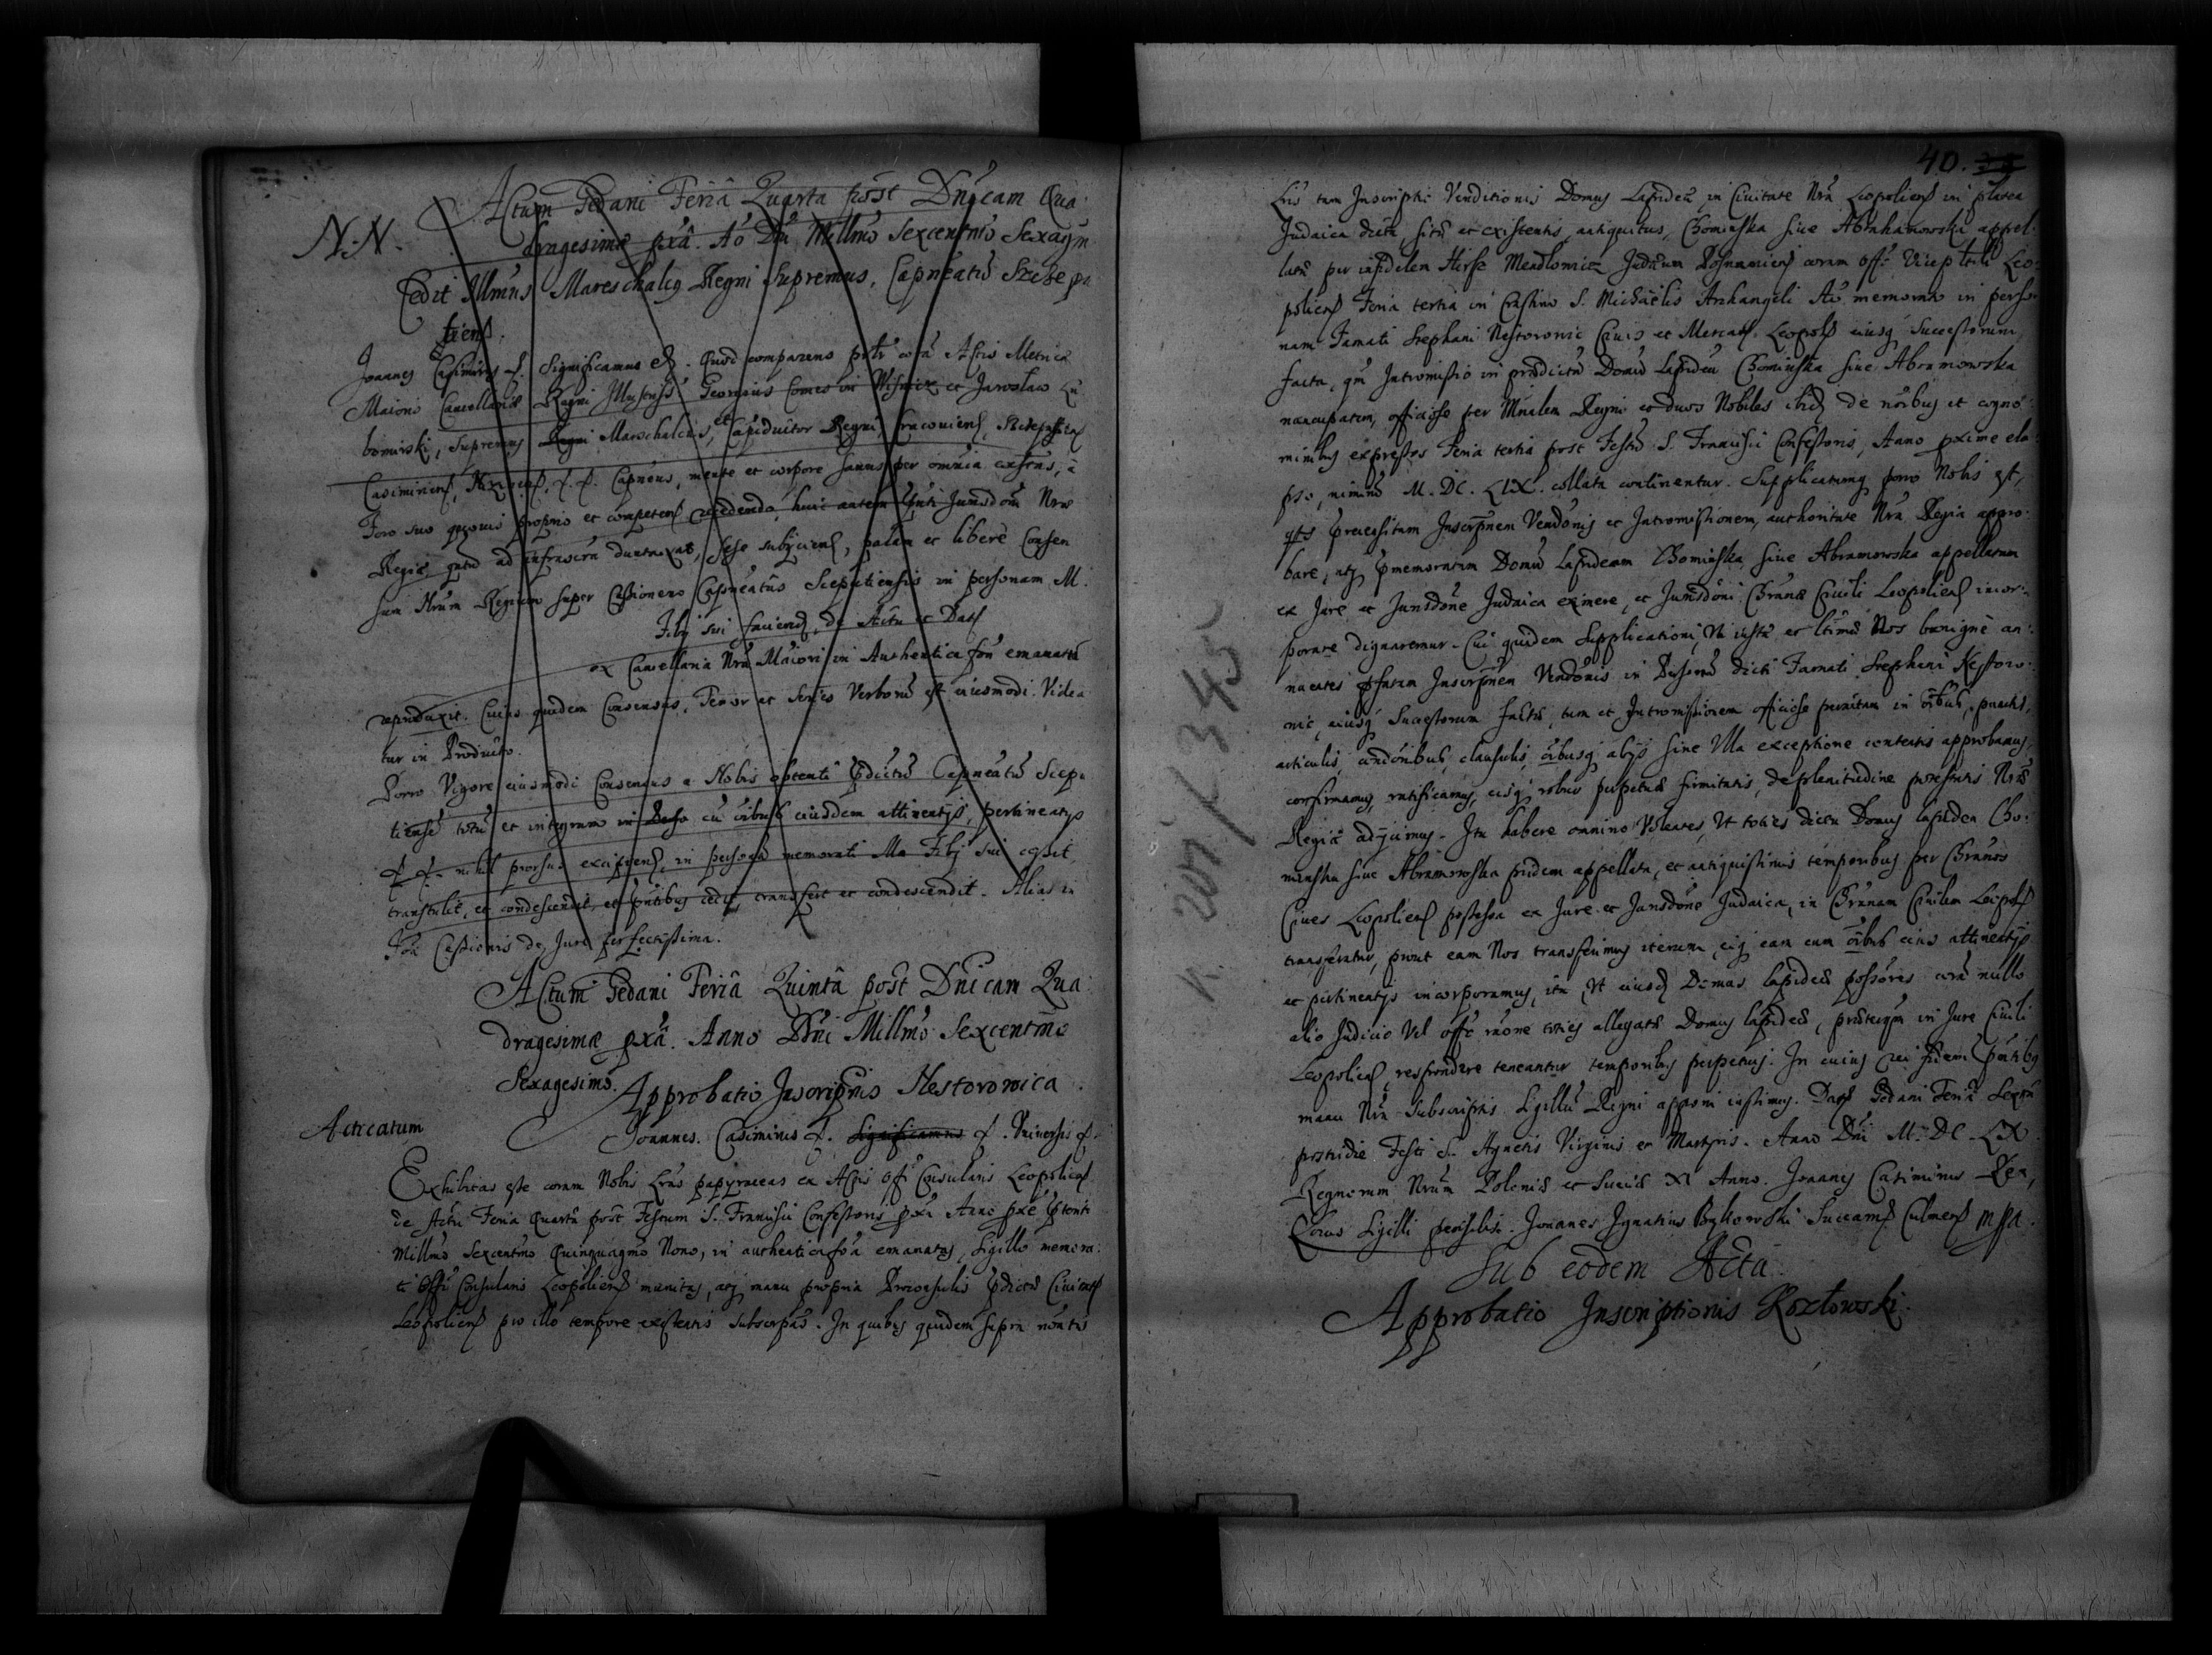 N. N.
Actum Gedani Feriâ Quarta post Dnicam Qua
dragesimæ pxâ. Ao Dni Millmo Sexcentmo Sexagm
Cedit Illmus Mareschalcus Regni Supremus, Capneatu Szczepu
tiens.
Joannes Casimirus f. Significamus &. Quod comparens psr corã Actis Metrices
Maioris Cancellariæ Regni Illustris Georgius Comes in Wisnicz et Jaroslaw Lu
bomirski, Supremus Regni Marschalcus, et Capiductor Regni, Cracouiens, Scepusien
Casimiriens, Capneus, mente et corpore sanus per omnia existens, à
Foro suo quouis proprio et competenti recedendo, huic autem Jurisdõni Nræ
Regiæ quod ad infrascrta duntaxat, sese subijciens, palam et liberè Consen
sum Nrum Regium super Cessionem Capneatûs Scepusiensis in personam M.
Filij sui faciend, de Actu et Dat
ex Cancellaria Nra Maiori in Authentica forã emanatu
reproduxit. Cuius quidem Consensus, Tenor et Series Verborũ est eiusmodi. Videa
tur in Producto.
Porro Vigore eiusmodi Consensus a Nobis obtenti pdictũ Capneatũ Scepu
tiense totũ et integrum cũ oibus eiusdem attinentijs, pertinentijs
f. f. nihil prorsus excipiens, in personã memorati M. Filij sui cessit,
transtulit, et condescendit, et pntibus cedit, transfert et condescendit. Alias in
Forã Cessionis de Jure perfectissima.
Actum Gedani Feriâ Quintâ post Dnicam Qua
dragesimæ pxâ. Anno Dni Millmo Sexcentmo
Sexagesimo. Approbatio Inscripnis Nestorowica.
Acticatum
Joannes Casimirus f. Significamus f. Vniuersis f.
Exhibitas esse coram Nobis Lras papyraceas ex Actis Offi Consularis Leopoliens
de Actu Feria Quarta post Festum S. Francisci Confessoris pxa Anni pxe
Millmo Sexcentmo Quinquagmo Nono, in authentica forã emanatas, Sigillo memora
ti Offi Consularis Leopoliens munitas, atq manu propria Proconsulis pdictæ Ciuitat
Leopoliens pro illo tempore existentis subscrptas. In quibus quidem supra
40.
Lris tum Inscriptio Venditionis Domus Lapideæ in Ciuitate Nra Leopoliens in platea
Judaica dicta, sitæ et existentis, antiquitus, Chominska siue Abrahamowska appel
latæ per infidelem Hirsz Mendlowicz Judæum Posnaniens coram Offo Vicepalli Leo
poliens Feria tertia in Crastino S. Michaëlis Archangeli Ao memorato in perso
nam Famati Stephani Nestorowic Ciuis et Mercat Leopols eiusq Successorum
facta, qm Intromissio in prædictã Domũ Lapideã Chominska siue Abramowska
nuncupatam, officiose per Mnialem Regni et duos Nobiles ibid de noibus et cogno
minibus expressos Feria tertia post Festũ S. Francisci Confessoris, Anno pxime ela
pso, nimirũ M. DC. LIX. collata continentur. Supplicatumq porro Nobis est,
qts præcensitam Inscrpnem Vendõnis et Intromissionem, authoritate Nra Regia appro
bare, atq pmemoratam Domũ Lapideam Chominska siue Abramowska appellatam
ex Jure et Jurisdõne Judaica eximere, et Jurisdõni Chrianæ Ciuili Leopoliens incor
porare dignaremur. Cui quidem Supplicationi, Vti iustæ et ltimæ Nos benignè an
nuentes pfatam Inscrpnem Vendõnis in Personã dicti Famati Stephani Nestoro
wic, eiusq Successorum factã, tum et Intromissionem officiose peractam in oibus, punctis,
articulis, cõndõnibus, clausulis, oibusq alijs sine Vlla exceptione contentis approbamus,
confirmamus, ratificamus, eisq robur perpetuæ firmitatis, de plenitudine potestatis Nræ
Regiæ adijcimus. Ita habere omnino Volentes, Vt toties dicta Domus lapidea Cho
minska siue Abramowska pridem appellata, et antiquissimis temporibus per Chrianos
Ciues Leopoliens possessa ex Jure et Jurisdõne Judaica, in Chrianam Ciuilem Leopols
transferatur, prout eam Nos transferimus iterum, eiq eam cum oibus eius attinentijs
et pertinentijs incorporamus, ita, Vt eiusd Domus lapideæ possores corã nullo
alio Judicio Vel Offo raone toties allegatæ Domus lapideæ, præterqm in Jure Ciuili
Leopoliens, respondere teneantur temporibus perpetuis. In cuius rei fidem pntibus
manu Nra Subscriptis Sigillũ Regni apponi iussimus. Dat Gedani Feria Sexta
postridie Festi S. Agnetis Virginis et Martyris. Anno Dni M. DC. LX.
Regnorum Nrum Poloniæ et Sueciæ XI Anno. Joannes Casimirus Rex,
Locus Sigilli pensilis. Joannes Ignatius Bąkowski Succam Culmens mpa.
Sub eodem Acta
Approbatio Inscriptionis Kozłowski.